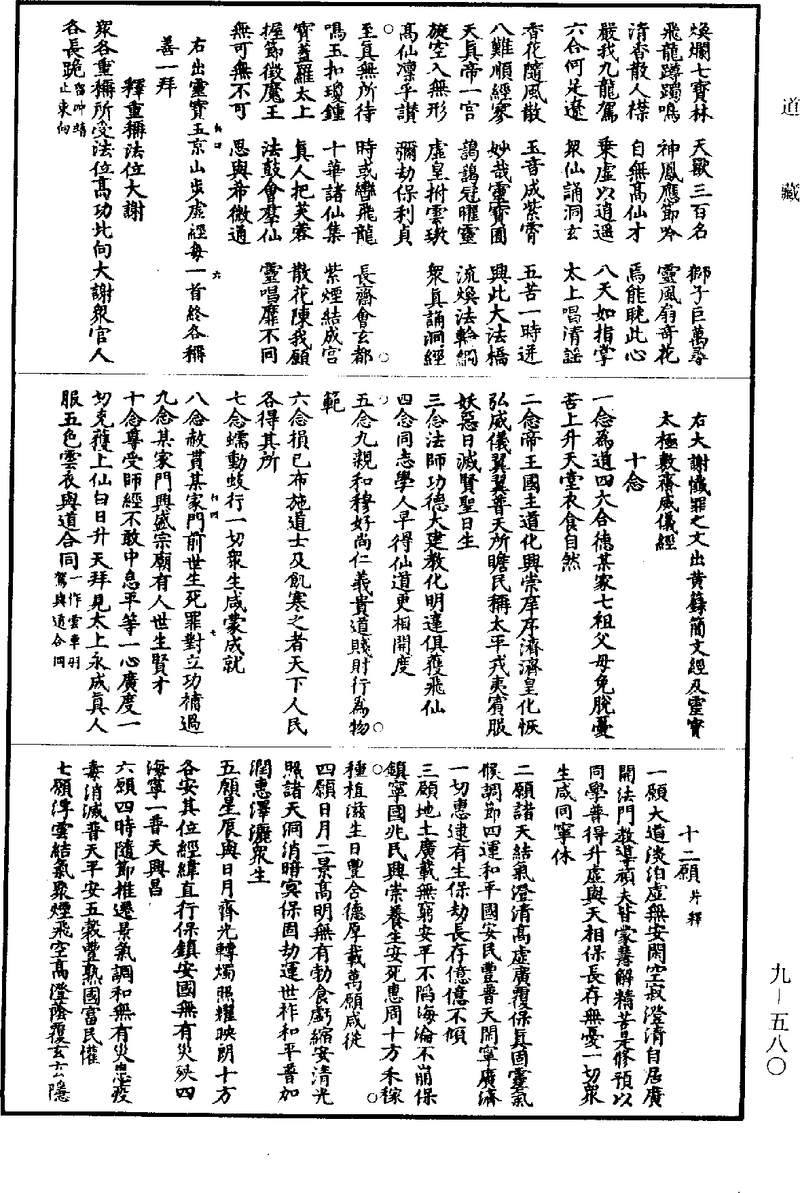 道藏
煥爛七寶林　天獸三百名　獅子巨萬尋
飛龍躑躅鳴　神鳳應節吟　靈風扇奇花
清香散人襟　自無高仙才　焉能眈此心
嚴我九龍駕　乘虛以逍遥　八天如指掌
六合何足遼　衆仙誦洞玄　太上唱清謡
香花隨風散　玉音成紫霄　五苦一時迸
八難順經寥　妙哉靈寶囿　興此大法橋
天真帝一宫　靄靄冠耀靈　流煥法輪綱
旋空入無形　虛皇拊雲璈　衆真誦洞經
高仙凛乎讃　彌劫保利貞
至真無所待　時或轡飛龍　長齋會玄都
鳴玉扣瓊鍾　十華諸仙集　紫煙結成宫
寶蓋羅太上　真人把芙蓉　散花陳我願
握節徵魔王　法鼓會羣仙　靈唱靡不同
無可無不可　思與希微通
右出靈寶玉京山步虛經每一首終各稱
善一拜
釋重稱法位大謝
衆各重稱所受法位高功北向大謝衆官人
各長跪
止東向
右大謝懺罪之文出黄籙簡文經及靈寶
太極敷齋威儀經
十念
一念為道四大合德某家七祖父母免脱憂
苦上升天堂衣食自然
二念帝王國主道化興崇庠序濟濟皇化恢
弘威儀翼翼普天所瞻民稱太平戎夷賓服
妖惡日滅賢聖日生
三念法師功德大建教化明達俱獲飛仙
四念同志學人早得仙道更相開度
五念九親和穆好尚仁義貴道賤財行為物
範
六念損己布施道士及飢寒之者天下人民
各得其所
七念蠕動蚑行一切衆生咸蒙成就
八念赦貰某家門前世生死罪對立功補過
九念某家門興盛宗廟有人世生賢才
十念尊受師經不敢中怠平等一心廣度一
切克獲上仙白日升天拜見太上永成真人
服五色雲衣與道合同一作雲車羽
駕與道合同
十二願
一願大道淡泊虛無安閑空寂澄清自居廣
開法門教導頑夫皆蒙慧解精苦是修預以
同學普得升虛與天相保長存無憂一切衆
生咸同寧休
二願諸天結氣澄清高虛廣覆保真固靈氣
候調節四運和平國安民豐普天閑寧廣濟
一切惠逮有生保劫長存億億不傾
三願地土廣載無窮安平不陷海淪不崩保
鎮寧國兆民興崇養生安死惠周十方禾稼
種植滋生日豐含德厚載萬願咸從
四願日月二景高明無有勃食虧縮安清光
照諸天洞消暗冥保固劫運世祚和平普加
潤惠澤灑衆生
五願星辰與日月齊光轉燭照耀映朗十方
各安其位經緯直行保鎮安國無有災殃四
海寧一普天興昌
六願四時隨節推遷景氣調和無有災患疫
毒消滅普天平安五穀豐熟國富民懽
七願浮雲結氣衆煙飛空高澄蔭覆玄玄隱
九—五八〇